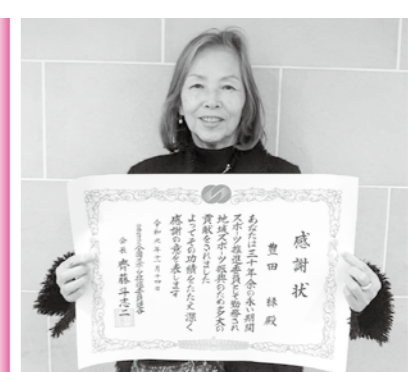 感謝状
豊田 緑 殿
あなたは三十年余の永い期間
スポーツ推進委員として勤務され
地域スポーツ振興のため多大の
貢献をされました
よってその功績をたたえ深く
感謝の意を表します
令和元年十一月十四日
会長 齊藤斗志二